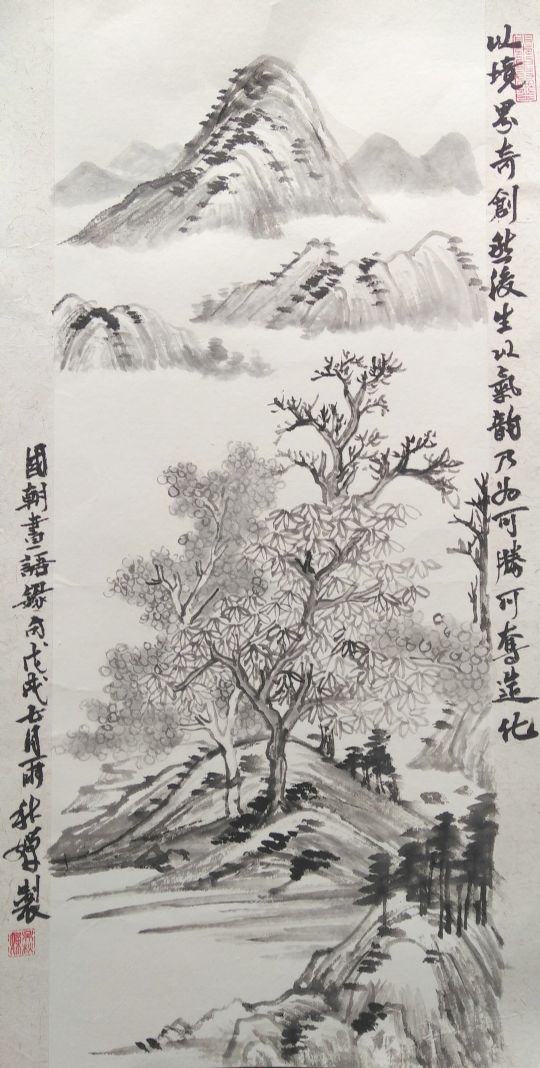 以境界奇創然後生以氣韵乃為可勝可奪造化
國朝畫語錄句戊戌七月雨秋㠭製